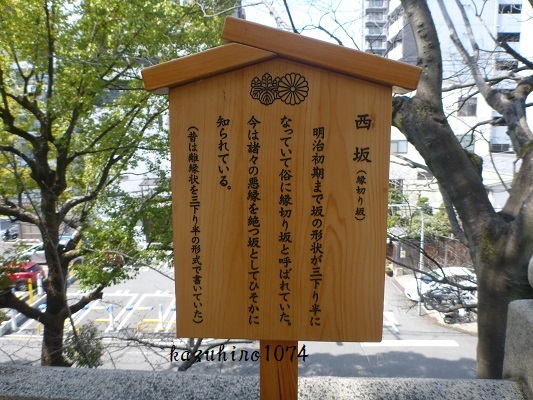 西坂（縁切り坂）
明治初期まで坂の形状が三下り半に
なっていて俗に縁切り坂と呼ばれていた。
今は諸々の悪縁を絶つ坂としてひそかに
知られている。
（昔は離縁状を三下り半の形式で書いていた）
kazuhiro1074